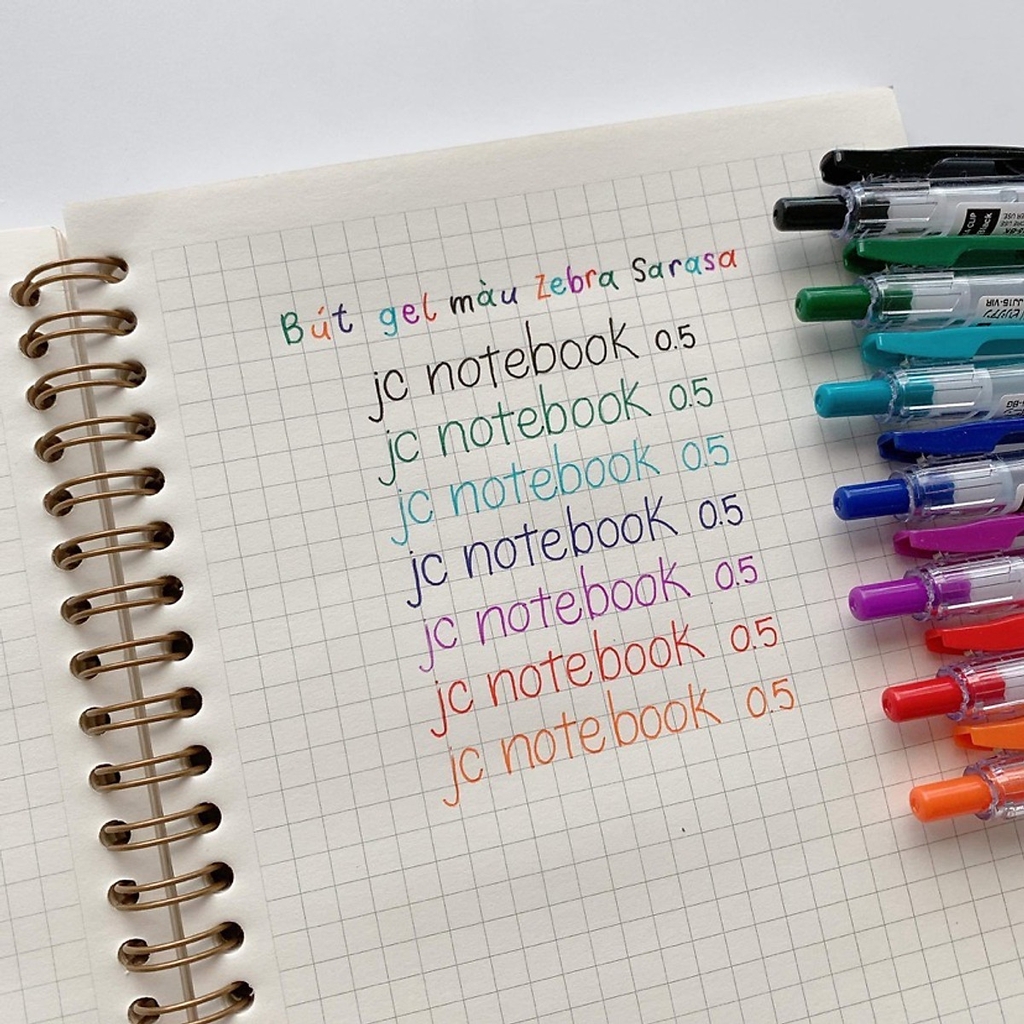 Bút gel màu Zebra Sarasa
jc notebook 0.5
jc notebook 0.5
jc notebook 0.5
jc notebook 0.5
jc notebook 0.5
jc notebook 0.5
jc notebook 0.5
CLIP
Black
JJ15-VIR
-BG